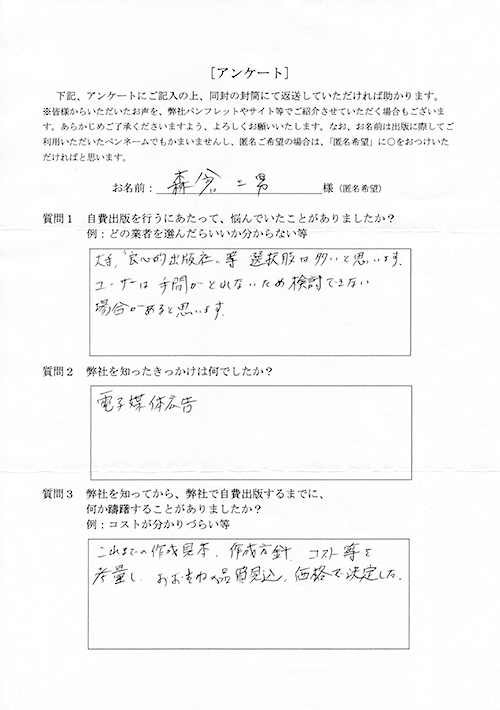 [アンケート]
下記、アンケートにご記入の上、同封の封筒にて返送していただければ助かります。
※皆様からいただいたお声を、弊社パンフレットやサイト等でご紹介させていただく場合もございま
す。あらかじめご了承くださいますよう、よろしくお願いいたします。なお、お名前は出版に際してご
利用いただいたペンネームでもかまいませんし、匿名ご希望の場合は、「匿名希望」に○をおつけいた
だければと思います。
お名前：森倉 二男 様（匿名希望）
質問１ 自費出版を行うにあたって、悩んでいたことがありましたか？
例：どの業者を選んだらいいか分からない等
大手，「良心的出版社」等 選択肢は多いと思います．
ユーザーは手間がとれないため検討できない
場合があると思います．
質問２ 弊社を知ったきっかけは何でしたか？
電子媒体広告
質問３ 弊社を知ってから、弊社で自費出版するまでに、
何か躊躇することがありましたか？
例：コストが分かりづらい等
これまでの作成見本，作成方針，コスト等を
考量し，おおまかな品質見込，価格で決定した．